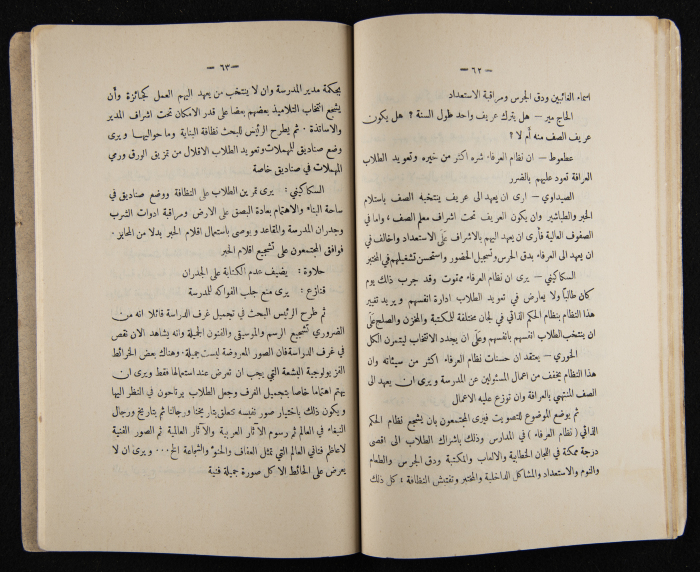 — ٦٢ —
اسماء الغائبين ودق الجرس ومراقبة الاستعداد
الحاج مير — هل يترك عريف واحد طول السنة ؟ هل يكون
عريف الصف منه أم لا ؟
عطعوط — ان نظام العرفاء شره اكثر من خيره وتعويد الطلاب
العرافة تعود عليهم بالضرر
الصيداوي — ارى ان يعهد الى عريف ينتخبه الصف باستلام
الحبر والطباشير وان يكون العريف تحت اشراف معلم الصف ، واما في
الصفوف العالية فأرى ان يعهد اليهم بالاشراف على الاستعداد واخالف في
ان يعهد الى العرفاء بدق الجرس وتسجيل الحضور واستحسن تشغيلهم في المختبر
السكاكيني — يرى ان نظام العرفاء ممقوت وقد جرب ذلك يوم
كان طالباً ولا يعارض في تعويد الطلاب ادارة انفسهم ويريد تغيير
هذا النظام بنظام الحكم الذاتي في لجان مختلفة للمكتبة والمخزن والصلح على
ان ينتخب الطلاب انفسهم بانفسهم وعلى ان يجدد الانتخاب ليتمرن الكل
الخوري — يعتقد ان حسنات نظام العرفاء اكثر من سيئاته وان
هذا النظام يخفف من اعمال المسئولين عن المدرسة ويرى ان يعهد الى
الصف المنتهي بالعرافة وان توزع عليه الاعمال
ثم يوضع الموضوع للتصويت فيرى المجتمعون بان يشجع نظام الحكم
الذاتي ( نظام العرفاء ) في المدارس وذلك باشراك الطلاب الى اقصى
درجة ممكنة في اللجان الخطابية والالعاب والمكتبة ودق الجرس والطعام
والنوم والاستعداد والمشاكل الداخلية والمختبر وتفتيش النظافة ، كل ذلك
— ٦٣ —
بحكمة مدير المدرسة وان لا ينتخب من يعهد اليهم العمل كجائزة وأن
يشجع انتخاب التلاميذ بعضهم بعضا على قدر الامكان تحت اشراف المدير
والاساتذة . ثم يطرح الرئيس للبحث نظافة البناية وما حواليها ويرى
وضع صناديق للمهملات وتعويد الطلاب الاقلال من تمزيق الورق ورمي
المهملات في صناديق خاصة
السكاكيني : يرى تمرين الطلاب على النظافة ووضع صناديق في
ساحة البناء والاهتمام بعادة البصق على الارض ومراقبة ادوات الشرب
وجدران المدرسة والمقاعد ويوصى باستعمال اقلام الحبر بدلا من المحابر .
فوافق المجتمعون على تشجيع اقلام الحبر
حلاوة : يضيف عدم الكتابة على الجدران
قنازع : يرى منع جلب الفواكه للمدرسة
ثم طرح الرئيس البحث في تجميل غرف الدراسة قائلا انه من
الضروري تشجيع الرسم والموسيقى والفنون الجميلة وانه يشاهد الان نقص
في غرف الدراسة فان الصور المعروضة ليست جميلة . وهناك بعض الخرائط
الفزيولوجية البشعة التي يجب ان تعرض عند استعمالها فقط ويرى ان
يهتم اهتماما خاصا بتجميل الغرف وجعل الطلاب يرتاحون في النظر اليها
ويكون ذلك باختيار صور نفيسه تتعلق بتاريخنا ورجالنا ثم بتاريخ ورجال
النبغاء في العالم ثم رسوم الآثار العربية والآثار العالمية ثم الصور الفنية
لاعاظم فناني العالم التي تمثل العفاف والحنو والشجاعة الخ . . . ويرى ان لا
يعرض على الحائط الا كل صورة جميلة فنية